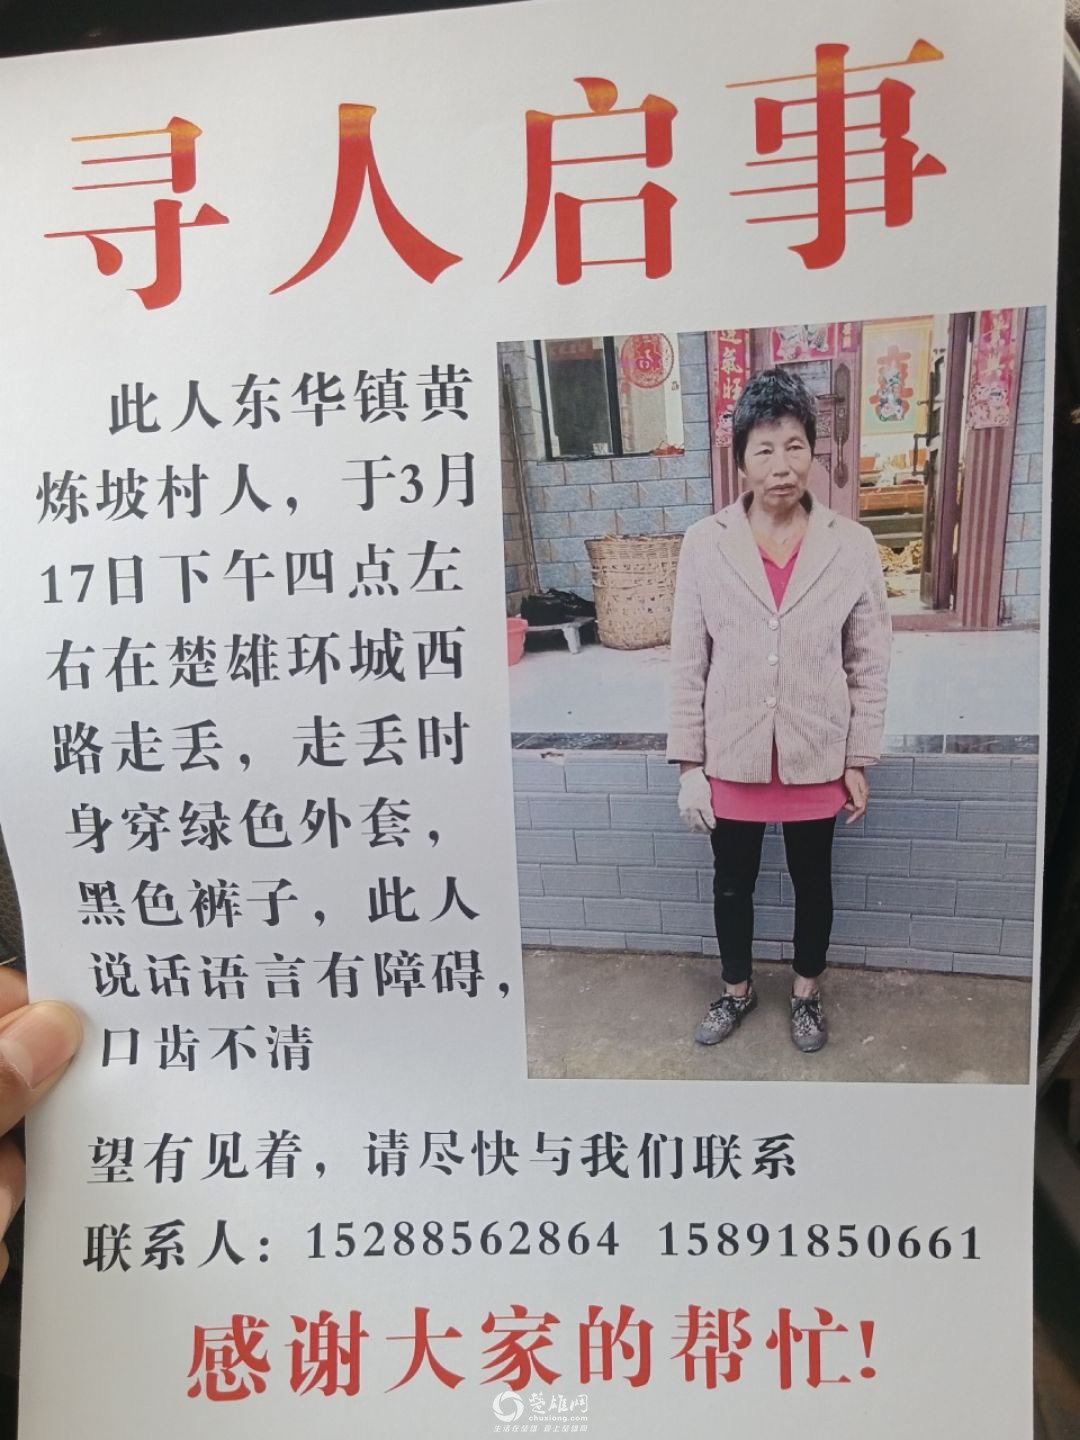 寻人启事
此人东华镇黄
炼坡村人，于3月
17日下午四点左
右在楚雄环城西
路走丢，走丢时
身穿绿色外套，
黑色裤子，此人
说话语言有障碍，
口齿不清
望有见着，请尽快与我们联系
联系人：15288562864 15891850661
感谢大家的帮忙!
楚雄网
chuxiong.com